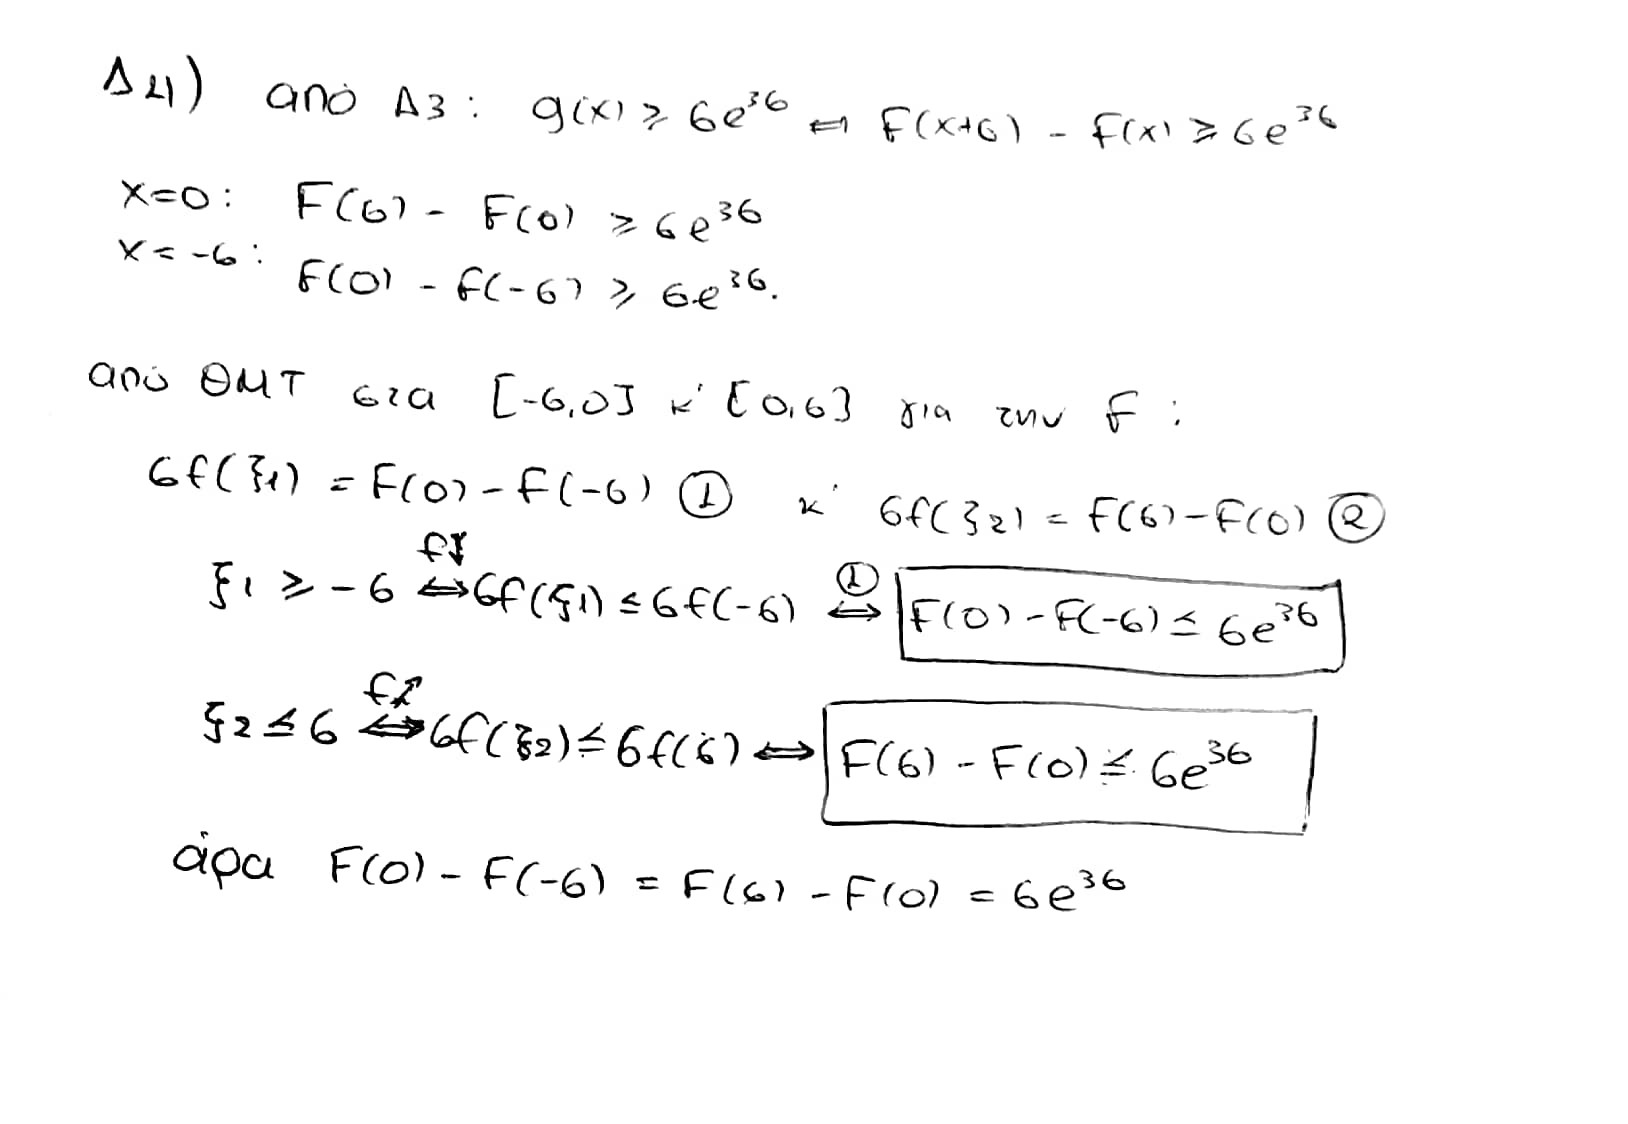 Δ4) από Δ3: g(x) ≥ 6e³⁶ ⟺ F(x+6) - F(x) ≥ 6e³⁶
x=0: F(6) - F(0) ≥ 6e³⁶
x=-6: F(0) - F(-6) ≥ 6e³⁶.
από ΘΜΤ στα [-6,0] κ' [0,6] για την F:
6f(ξ₁) = F(0) - F(-6) ① κ' 6f(ξ₂) = F(6) - F(0) ②
ξ₁ ≥ -6 ⟺ 6f(ξ₁) ≤ 6f(-6) ⟺ F(0) - F(-6) ≤ 6e³⁶
ξ₂ ≤ 6 ⟺ 6f(ξ₂) ≤ 6f(6) ⟺ F(6) - F(0) ≤ 6e³⁶
άρα F(0) - F(-6) = F(6) - F(0) = 6e³⁶